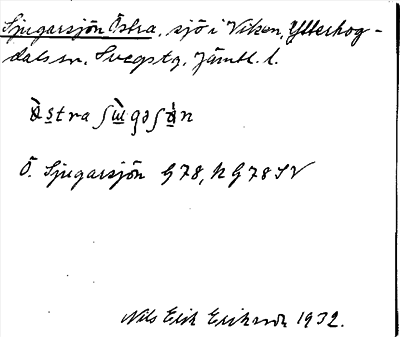 Sjugarsjön Östra, sjö i Viken, Ytterhog-
dals sn. Svegs tg. Jämtl. l.
Ö. Sjugarsjön G 78, K G 78 SV
Nils Erik Eriksson 1932.